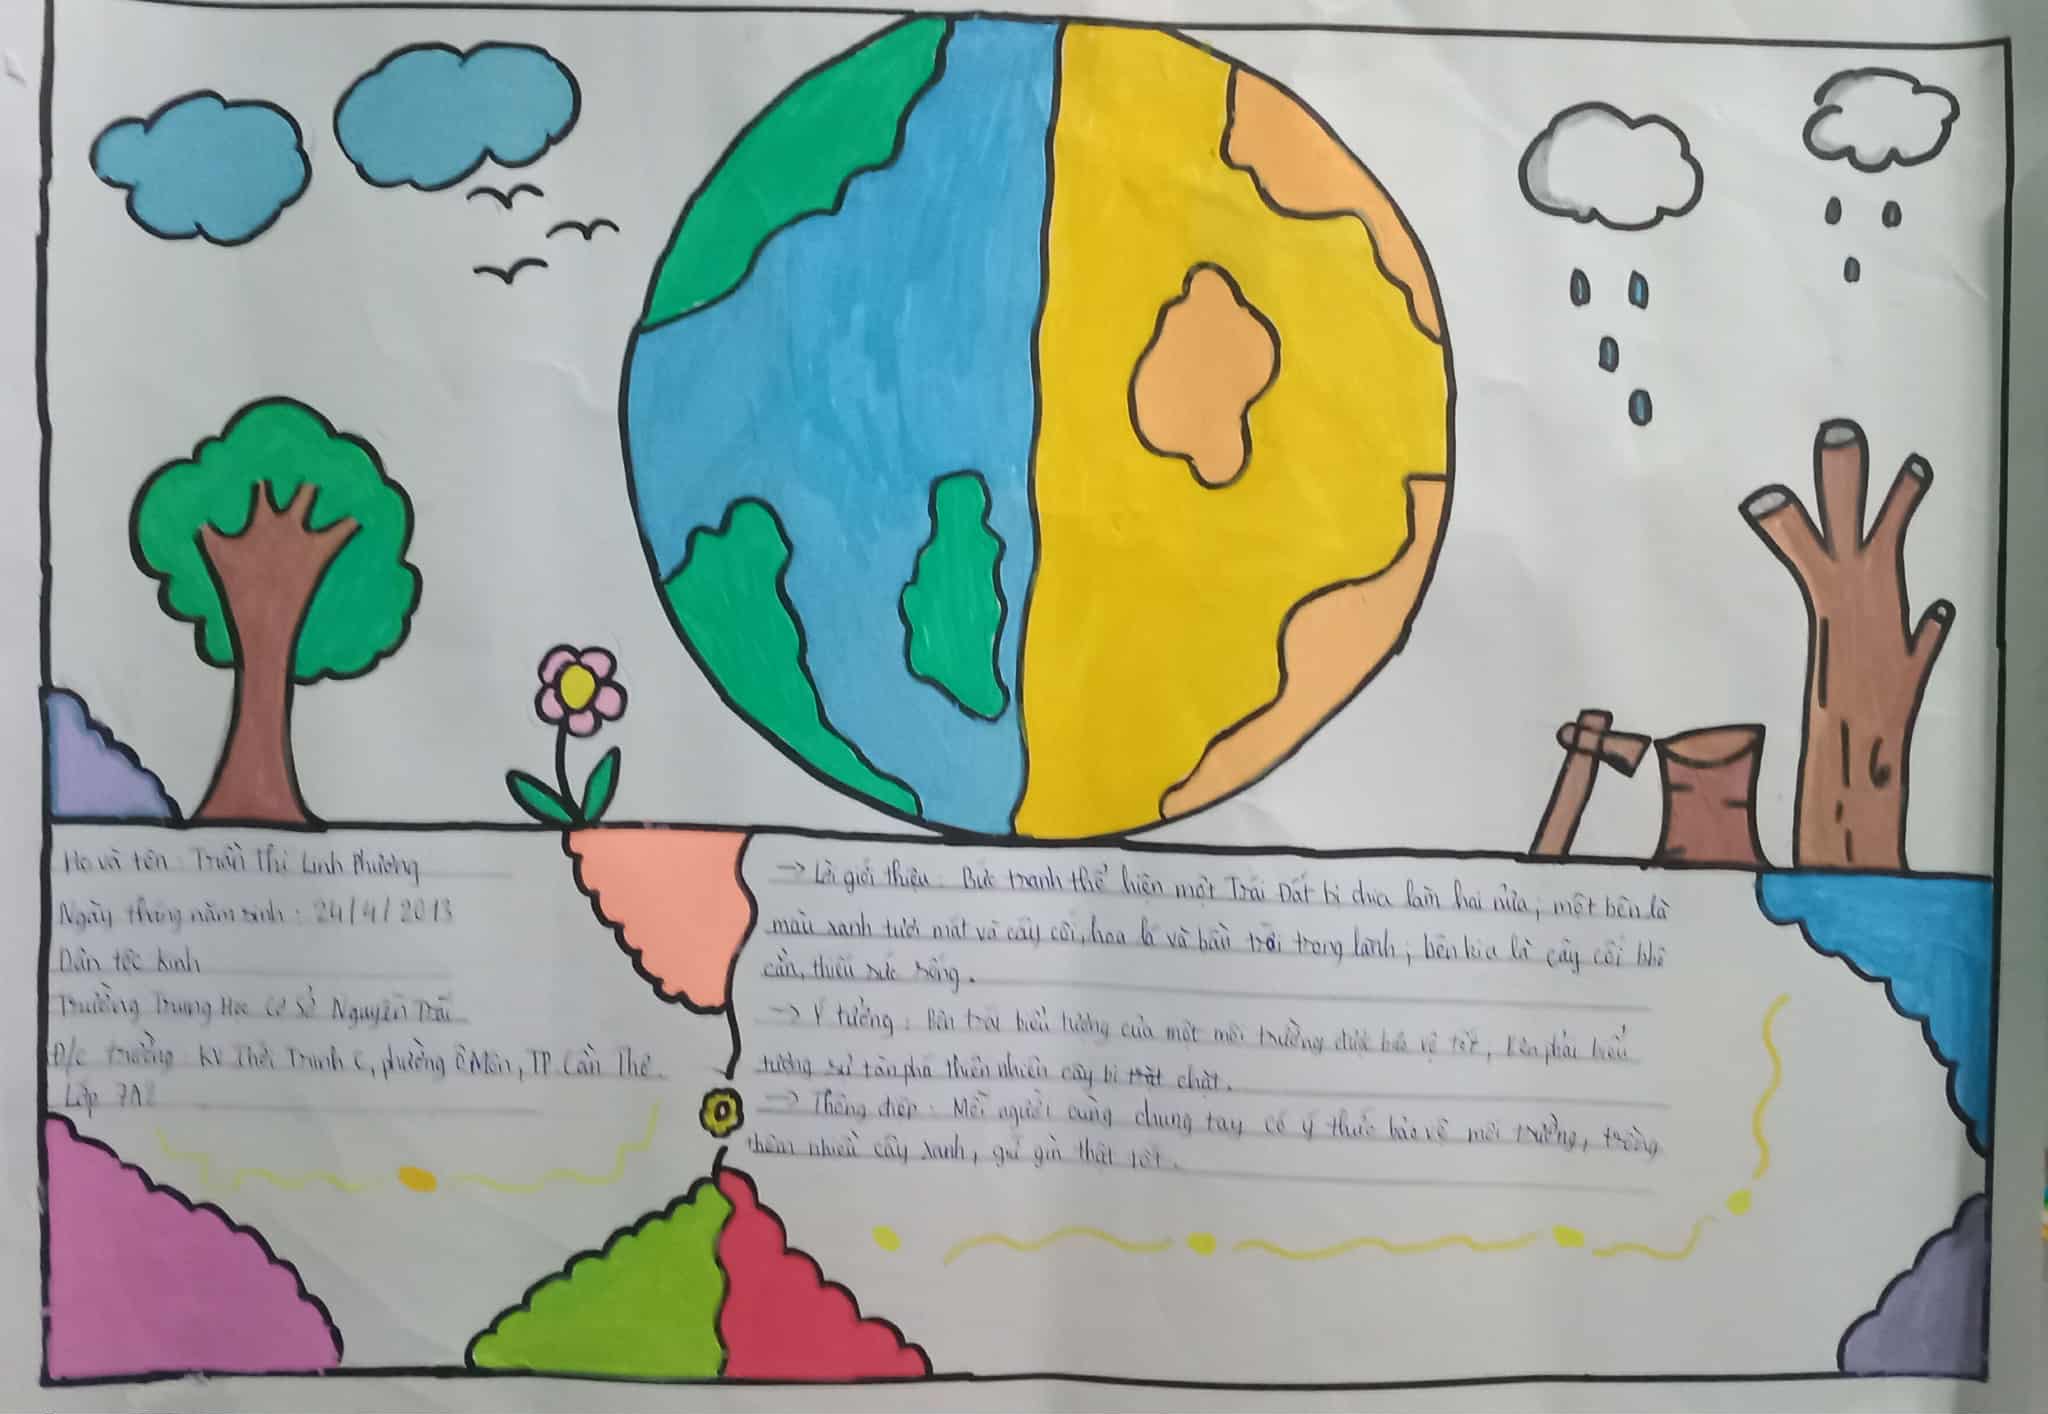 Họ và tên: Trần Thị Linh Phương
Ngày tháng năm sinh: 24/4/2013
Dân tộc Kinh
Trường Trung Học Cơ Sở Nguyễn Trãi
Đ/c trường: KV Thới Trinh C, phường Ô Môn, TP. Cần Thơ.
Lớp 7A2
→ Lời giới thiệu: Bức tranh thể hiện một Trái Đất bị chia làm hai nửa; một bên là
màu xanh tươi mát và cây cối, hoa lá và bầu trời trong lành; bên kia là cây cối khô
cằn, thiếu sức sống.
→ Ý tưởng: Bên trái biểu tượng của một môi trường được bảo vệ tốt, bên phải biểu
tượng sự tàn phá thiên nhiên cây bị chặt.
→ Thông điệp: Mỗi người cùng chung tay có ý thức bảo vệ môi trường, trồng
thêm nhiều cây xanh, giữ gìn thật tốt.